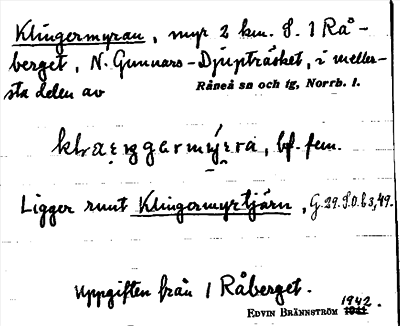 Klingermyran, myr 2 km. S. 1 Rå-
berget, N. Gunnars-Djupträsket, i meller-
sta delen av Råneå sn och tg, Norrb. l.
bf. fem.
Ligger runt Klingermyrtjärn, G.29.S.O.b3,49.
Uppgiften från 1 Råberget.
EDVIN BRÄNNSTRÖM 1942.